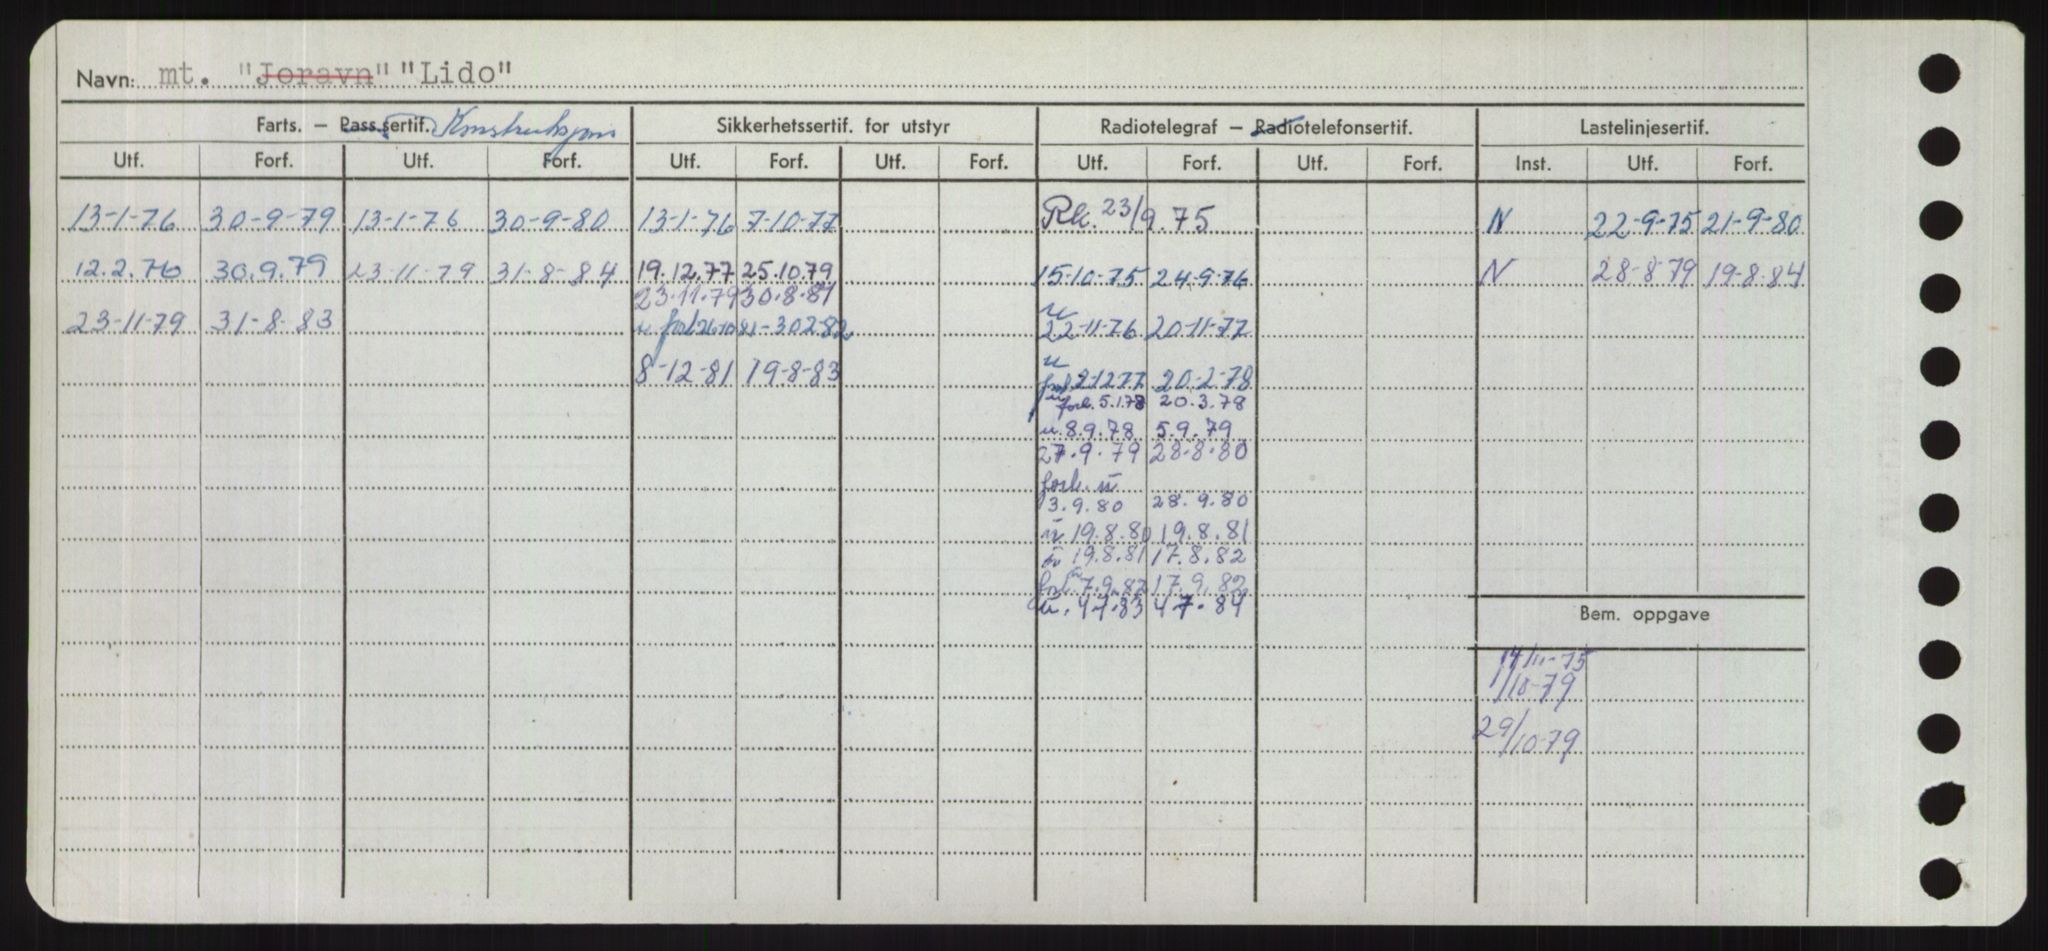 Navn: mt. "Joravn" "Lido"
Farts. – Pass.sertif. Konstruksjons Sikkerhetssertif. for utstyr Radiotelegraf – Radiotelefonsertif. Lastelinjesertif.
Utf. Forf. Utf. Forf. Utf. Forf. Utf. Forf. Utf. Forf. Utf. Forf. Inst. Utf. Forf.
13-1-76 30-9-79 13-1-76 30-9-80 13-1-76 7-10-77 Rk. 23/9.75 N 22-9-75 21-9-80
12.2.76 30.9.79 23-11-79 31-8-84 19.12.77 25.10.79 15-10-75 24-9-76 N 28-8-79 19-8-84
23.11.79 30.8.81
u
23-11-79 31-8-83 u forl 26-10-81-30.2.82 22-11-76 20-11-77
u
8-12-81 19-8-83 forl 2-12-77 20-2-78
u forl. 5.1.78 20.3.78
u. 8.9.78 5.9.79
27.9.79 28.8.80
forl. u
3.9.80 28.9.80
u 19.8.80 19.8.81
u 19.8.81 17.8.82
forl u 7.9.82 17.9.82
u. 4.7.83 4.7.84
Bem. oppgave
14/11-75
1/10-79
29/10-79